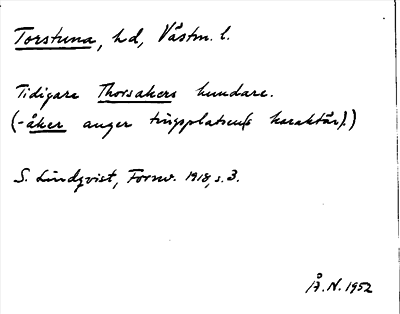 Torstuna, hd, Västm. l.
Tidigare Thorsakers hundare.
(-åker anger tingsplatsen(s karaktär).)
S. Lindqvist, Fornv. 1918, s. 3.
Å. N. 1952